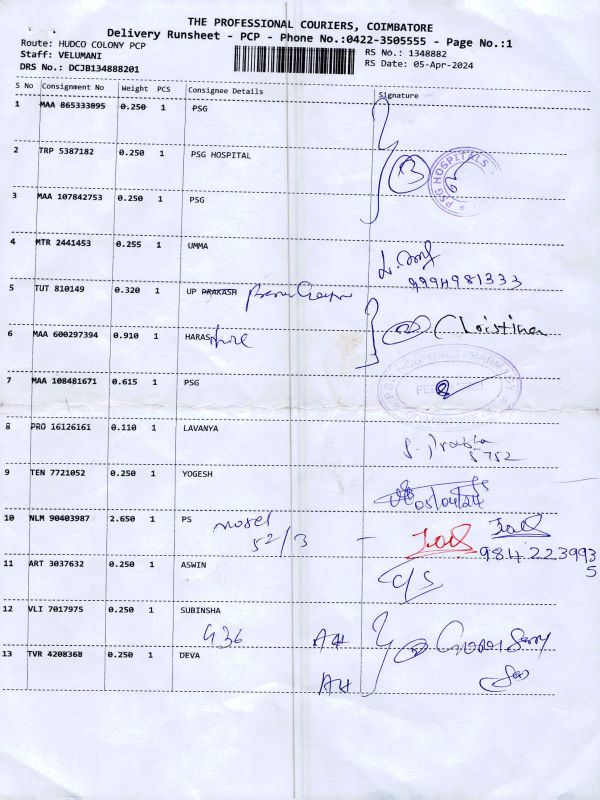 THE PROFESSIONAL COURIERS, COIMBATORE
Delivery Runsheet - PCP - Phone No.:0422-3505555 - Page No.:1
Route: HUDCO COLONY PCP
RS No.: 1348882
Staff: VELUMANI
RS Date: 05-Apr-2024
DRS No.: DCJB134888201
S No Consignment No Weight PCS Consignee Details Signature
1 MAA 865333895 0.250 1 PSG
2 TRP 5387182 0.250 1 PSG HOSPITAL
PSG HOSPITALS
3 MAA 107842753 0.250 1 PSG
4 MTR 2441453 0.255 1 UMMA
9994981333
5 TUT 810149 0.320 1 UP PRAKASH
6 MAA 600297394 0.910 1 HARAS
Cristina
7 MAA 108481671 0.615 1 PSG
PSG HOSPITALS PHARMACY
8 PRO 16126161 0.110 1 LAVANYA
5752
9 TEN 7721052 0.250 1 YOGESH
05/04/24
10 NLM 90403987 2.650 1 PS
52/3
9842239935
11 ART 3037632 0.250 1 ASWIN
C/S
12 VLI 7017975 0.250 1 SUBINSHA
G36 AH
13 TVR 4208368 0.250 1 DEVA
AH